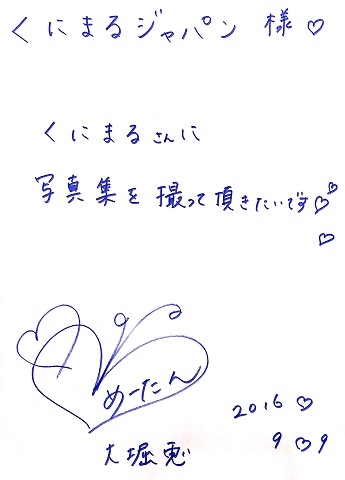 くにまるジャパン 様♡
くにまるさんに
写真集を撮って頂きたいです♡♡
♡
めーたん
大堀恵
2016♡
9♡9